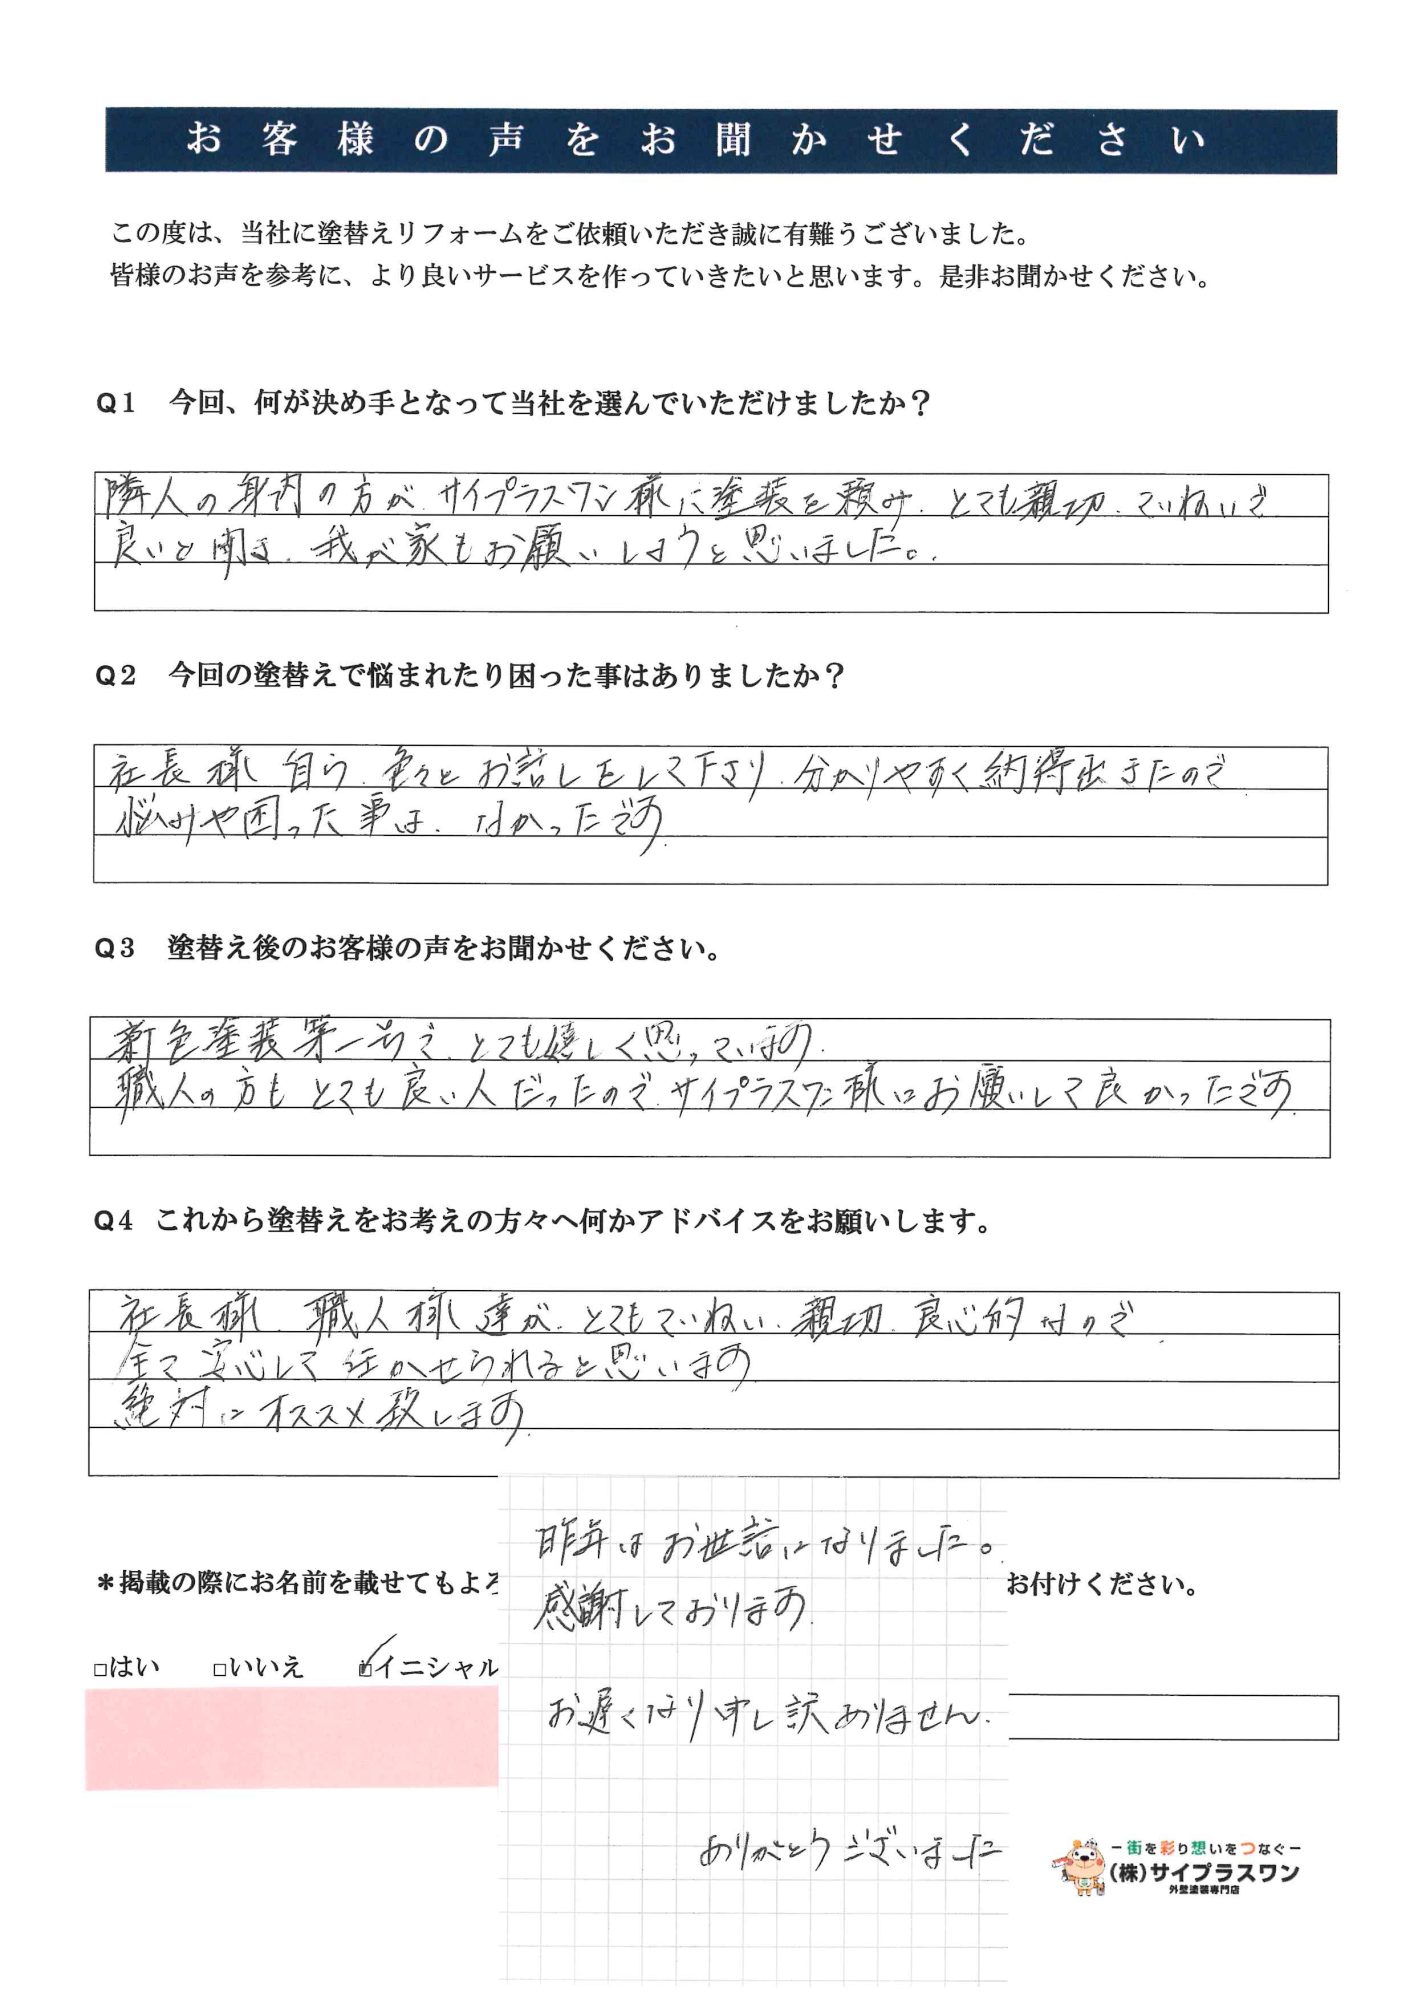 お客様の声をお聞かせください
この度は、当社に塗替えリフォームをご依頼いただき誠に有難うございました。
皆様のお声を参考に、より良いサービスを作っていきたいと思います。是非お聞かせください。
Q1 今回、何が決め手となって当社を選んでいただけましたか？
隣人の身内の方が、サイプラスワン様に塗装を頼み、とても親切、ていねいで
良いと聞き、我が家もお願いしようと思いました。
Q2 今回の塗替えで悩まれたり困った事はありましたか？
社長様自ら、色々とお話しをして下さり、分かりやすく納得出きたので
悩みや困った事は、なかったです
Q3 塗替え後のお客様の声をお聞かせください。
新色塗装第一号で、とても嬉しく思っています
職人の方もとても良い人だったので、サイプラスワン様にお願いして良かったです
Q4 これから塗替えをお考えの方々へ何かアドバイスをお願いします。
社長様、職人様達が、とてもていねい、親切、良心的なので
全て安心して任かせられると思います
絶対にオススメ致します
昨年はお世話になりました。
＊掲載の際にお名前を載せてもよろ
お付けください。
感謝しております
□はい □いいえ ☑イニシャル
お遅くなり申し訳ありません。
ありがとうございました
－街を彩り想いをつなぐ－
(株)サイプラスワン
外壁塗装専門店